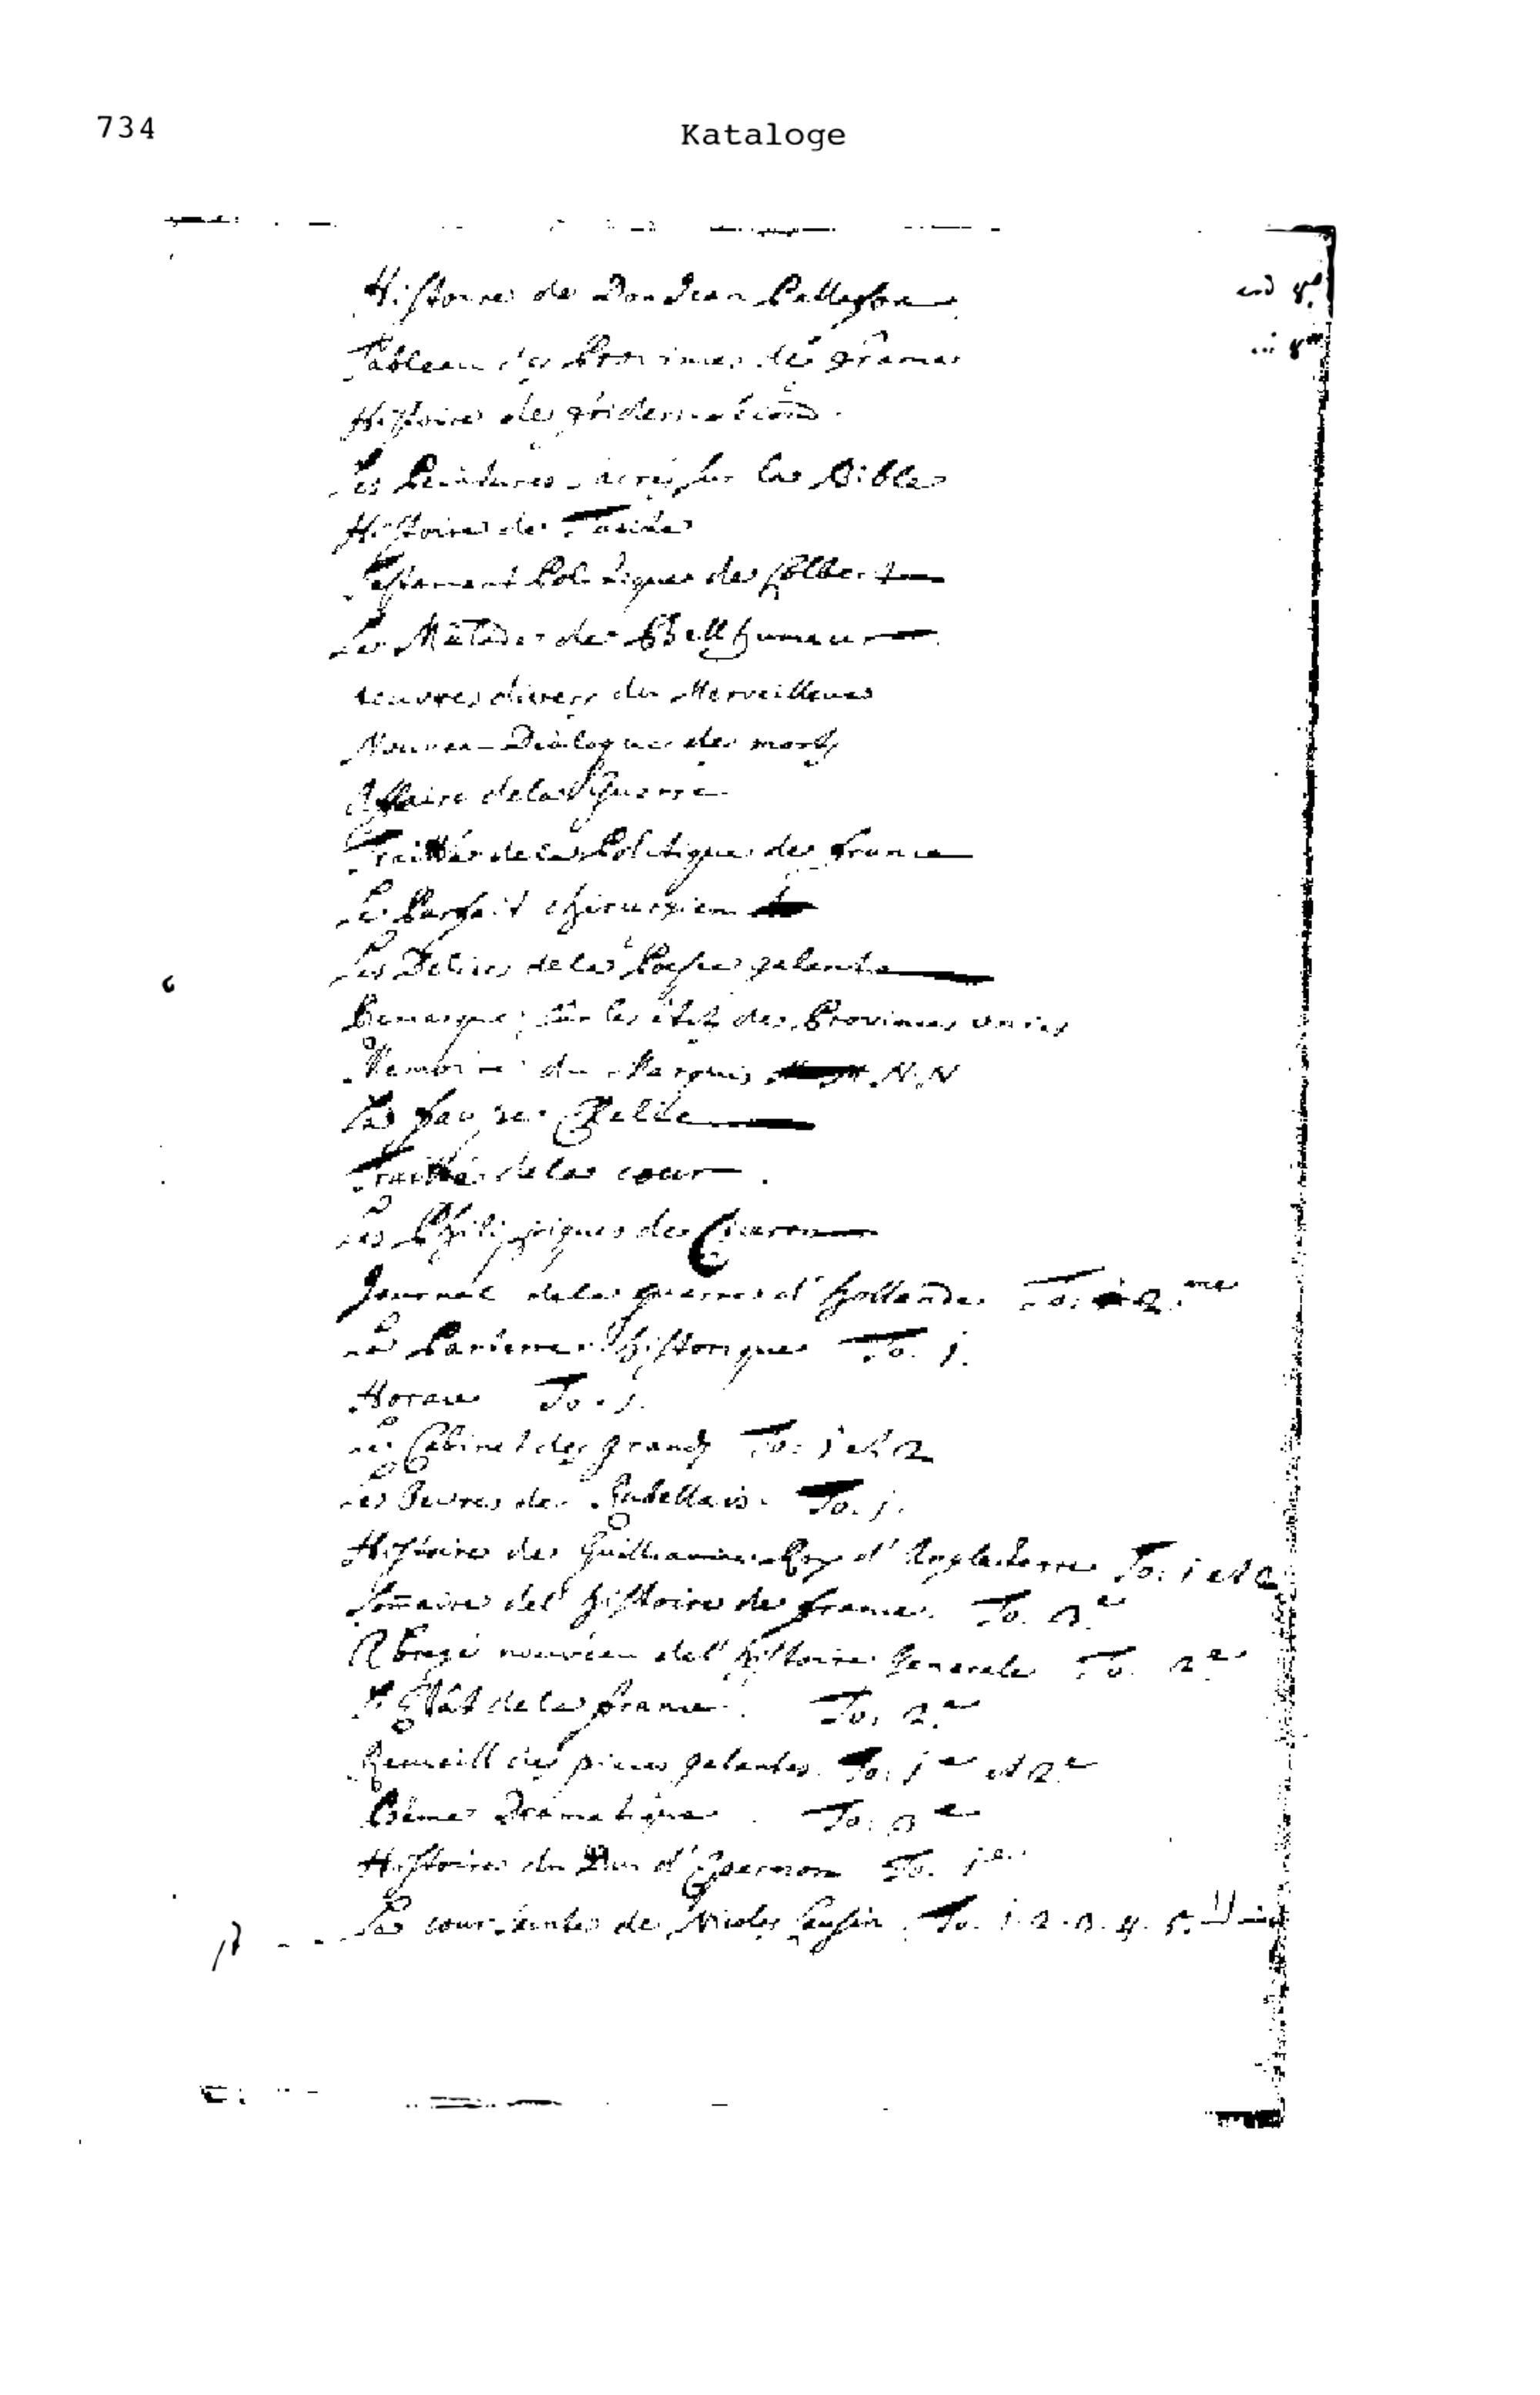 734
Kataloge
Histoire de Don Jean
Tableau des Provinces de France
Histoire de
Les Peintures sacrés sur la Bible
Histoire de Tacite
Testament Politique de Colbert
Le de Bell humeur
euvres divers du Merveilleux
Nouveau Dialogue des morts
Affaire de la Guerre
Traittée de la Politique de France
Le Parfait chirurgien
Les Delices de la Poesie galante
Remarques sur les états des Provinces unies
Memoire du Marquis N. N
La fausse Clelie
Traitté de la cour
Les Philippiques de Ciceron
Journal de la guerre d'hollande To. 2me
Le Parterre historique To. 1.
Horace To. 1.
Le Cabinet des grands To. 1 et 2
Les Oeuvres de Rabellais. To. 1.
Histoire de Guilleaume Roy d'Angleterre To. 1 et 2
Somaire de l'histoire de france. To. 3e
Abregé nouveau de l'histoire Generale To. 2e
L'Etat de la france. To. 2e
Recueill des pieces galantes. To. 1e et 2e
Poëme Dramatique. To. 3e
Histoire du Duc d'Epernon To. 1e
La cour sainte de Nicolas Caussin. To. 1. 2. 3. 4. 5.